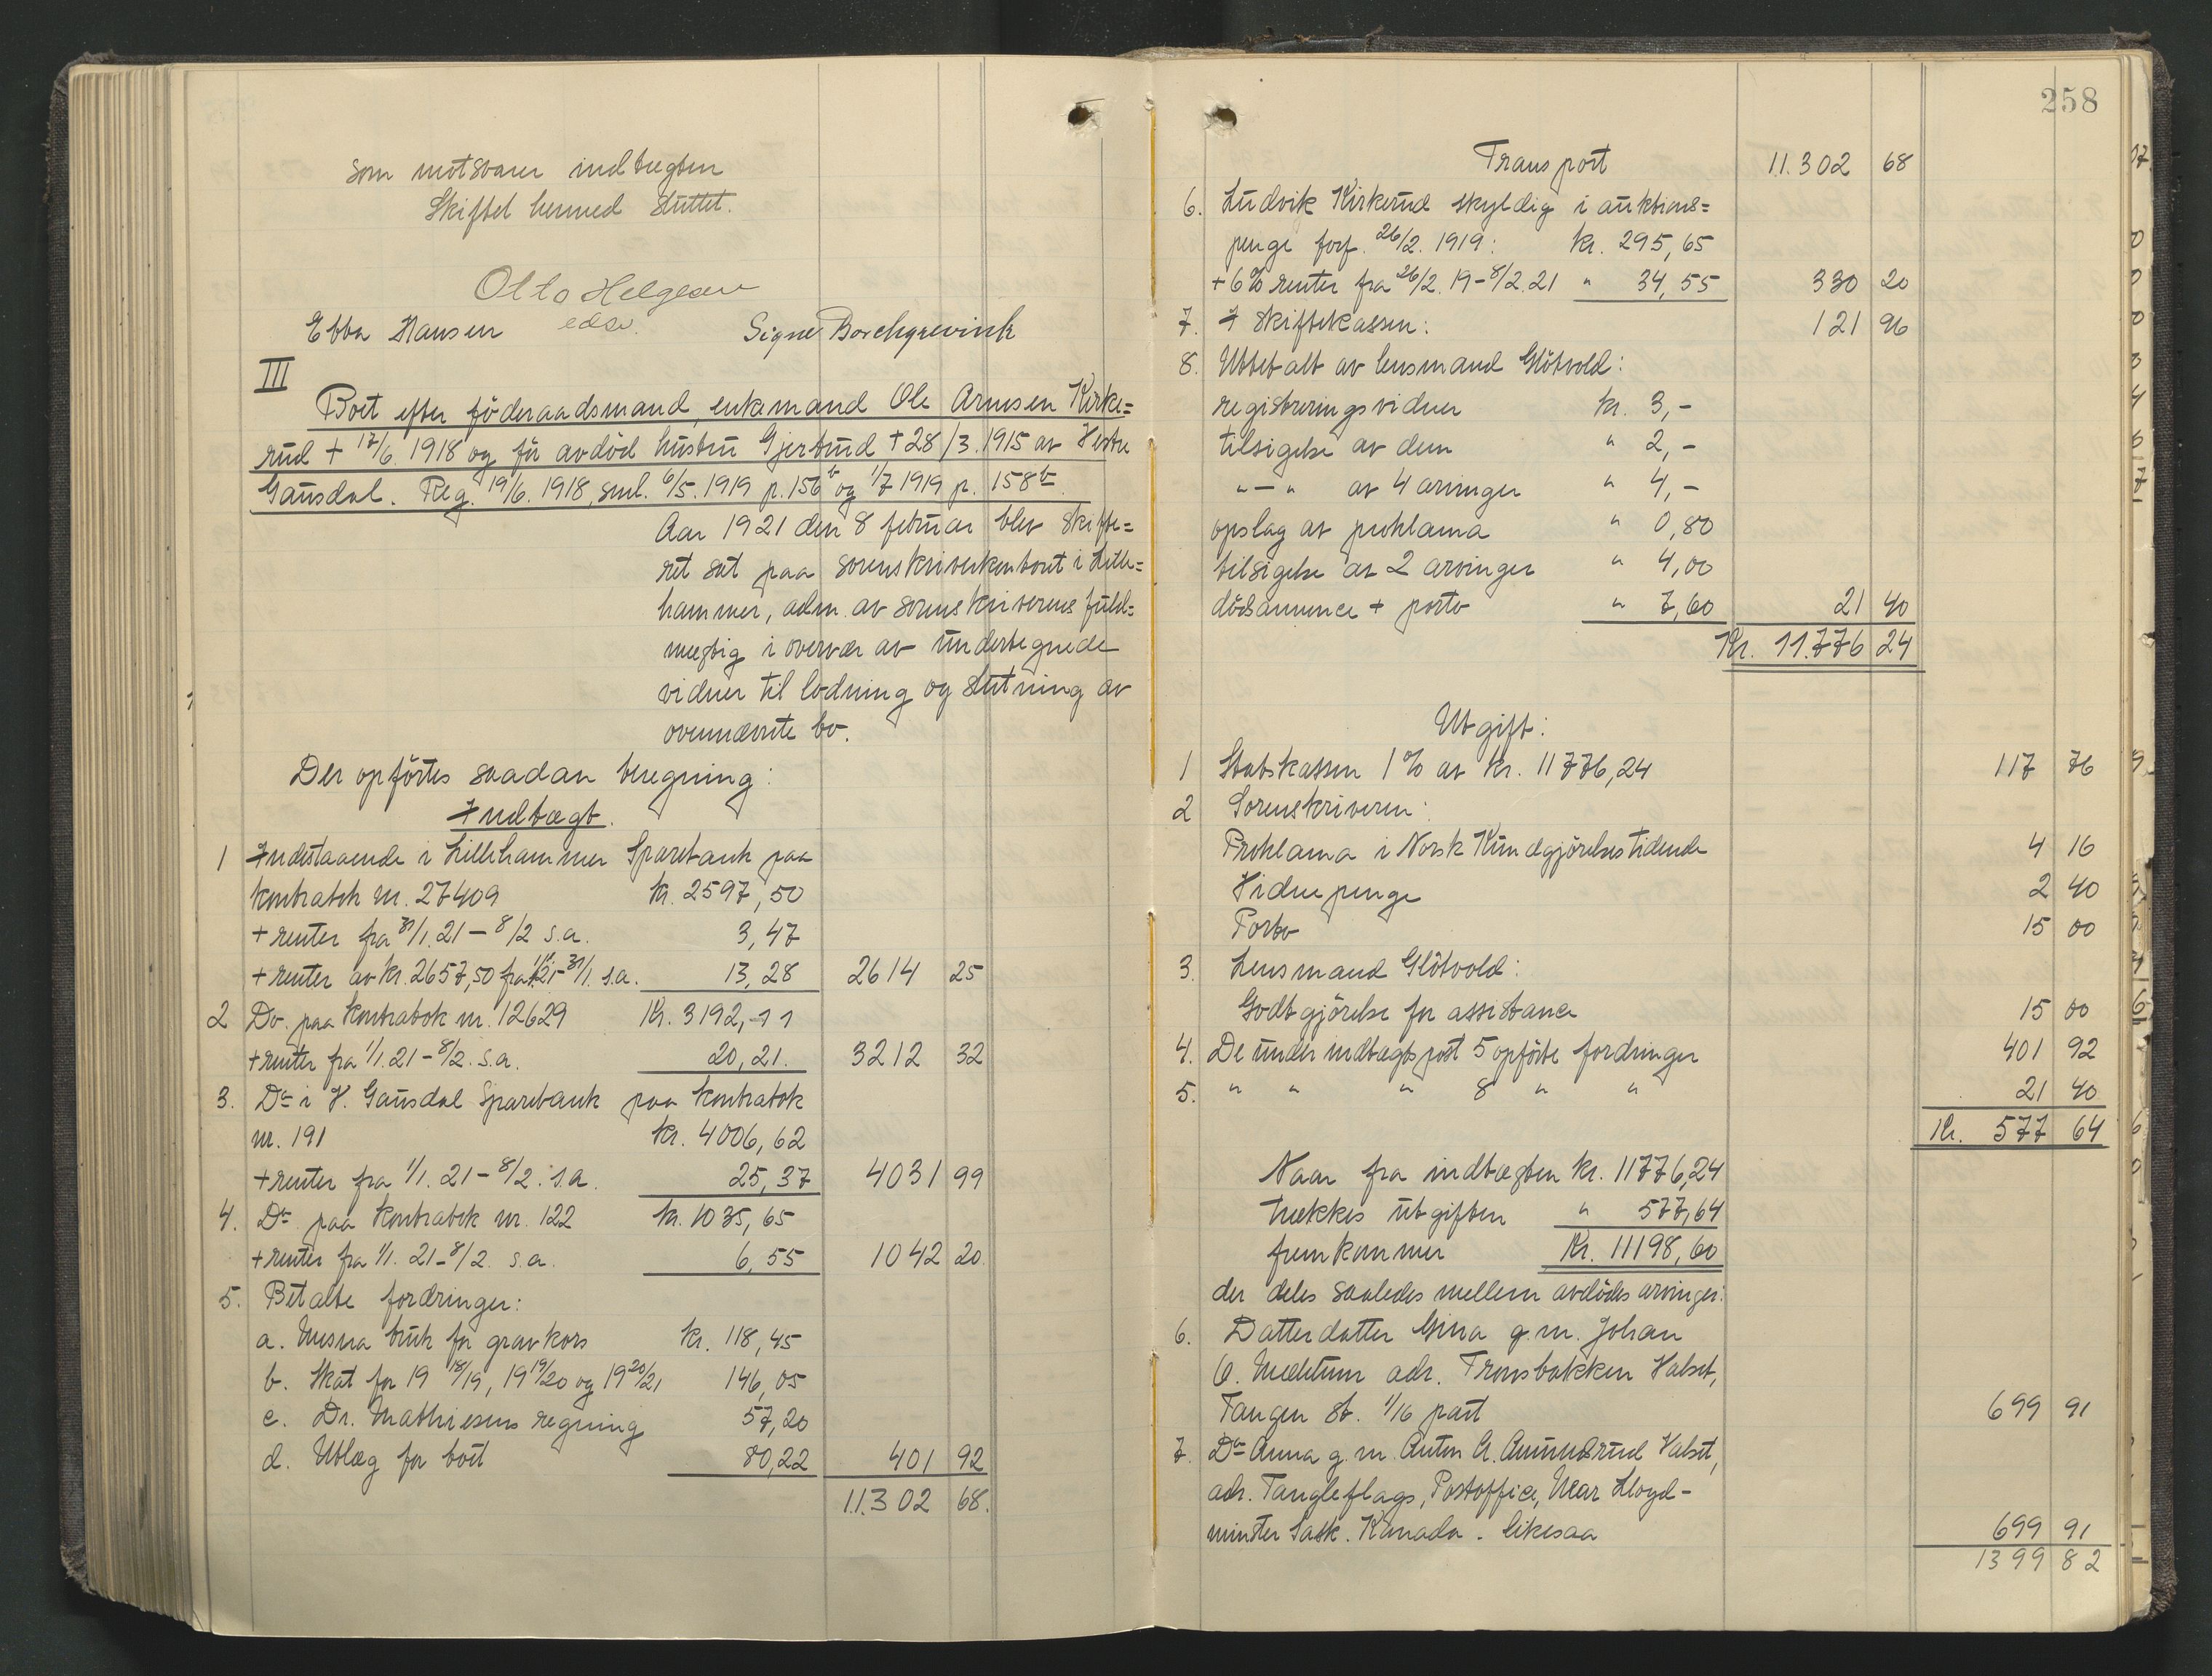 som motsvarer indtægten
Skiftet hermed sluttet.
Otto Helgesen
edsv.
Ebba Hansen Signe Borchgrevink
III
Boet efter föderaadsmand, enkemand Ole Arnesen Kirke=
rud + 17/6. 1918 og før avdöd hustru Gjertrud + 28/3. 1915 av Vestre
Gausdal. Reg. 19/6. 1918, sml. 6/5. 1919 p. 156 b og 1/7 1919 p. 158 b.
Aar 1921 den 8 februar blev skifte=
ret sat paa sorenskriverkontoret i Lille=
hammer, adm. av sorenskriverens fuld=
mægtig i overvær av undertegnede
vidner til lodning og slutning av
ovennævnte bo.
Der opförtes saadan beregning:
Indtægt.
1 Indestaaende i Lillehammer Sparebank paa
kontrabok nr. 27409 kr. 2597,50
+ renter fra 31/1. 21 – 8/2 s.a. 3,47
+ renter av kr. 2657,50 fra 1/1. 21 – 31/1. s.a. 13,28 2614 25
2 Do. paa kontrabok nr. 12629 Kr. 3192,11
+ renter fra 1/1. 21 – 8/2. s.a. 20,21. 3212 32
3. Do i V. Gausdal Sparebank paa kontrabok
nr. 191 kr. 4006,62
+ renter fra 1/1. 21 – 8/2. s.a. 25,37 4031 99
4. Do paa kontrabok nr. 122 kr. 1035,65
+ renter fra 1/1. 21 – 8/2. s.a. 6,55 1042 20
5. Betalte fordringer:
a. Mesna bruk for gravkors kr. 118,45
b. Skat for 19 18/19, 19 19/20 og 19 20/21 146,05
c. Dr. Mathiesens regning 57,20
d. Utlæg for boet 80,22 401 92
11.302 68.
258
Transport 11.302 68
6. Ludvik Kirkerud skyldig i auktions=
penge forf. 26/2. 1919: kr. 295,65
+ 6% renter fra 26/2. 19 – 8/2. 21 " 34,55 330 20
7. I skiftekassen: 121 96
8. Utbetalt av lensmand Glötvold:
registreringsvidner kr. 3,-
tilsigelse av dem " 2,-
" – " av 4 arvinger " 4,-
opslag av proklama " 0,80
tilsigelse av 2 arvinger " 4,00
dödsannonce + porto " 7,60 21 40
Kr. 11.776 24
Utgift:
1 Statskassen 1% av kr. 11776,24 117 76
2 Sorenskriveren:
Proklama i Norsk Kundgjörelsestidende 4 16
Vidnepenge 2 40
Porto 15 00
3. Lensmand Glötvold:
Godtgjörelse for assistance 15 00
4. De under indtægtspost 5 opförte fordringer 401 92
5. " " " 8 " " 21 40
Kr. 577 64
Naar fra indtægten kr. 11776,24
trækkes utgiften " 577,64
fremkommer Kr. 11198,60
der deles saaledes mellem avdödes arvinger:
6. Datterdatter Gina g.m. Johan
O. adr. Tronsbakken Valset,
Tangen st. 1/16 part 699 91
7. Do Anna g.m. Anton A. Amundrud Valset,
adr. Tangleflags, Postoffice, Near Lloyd-
minster Sask. Kanada. likesaa 699 91
1399 82